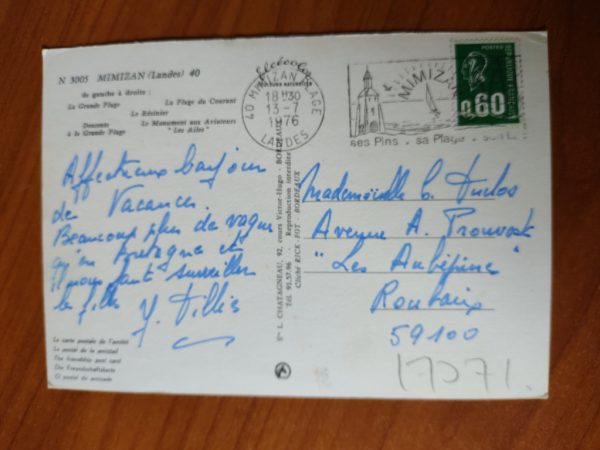 N 3005 MIMIZAN (Landes) 40
de gauche à droite :
La Grande Plage La Plage du Courant
Le Résinier
Descente à la Grande Plage Le Monument aux Aviateurs "Les Ailes"
Affectueux bonjour
de Vacances.
Beaucoup plus de vagues
qu'en Bretagne et
il nous faut surveiller
les filles
La carte postale de l'amitié
La postal de la amistad
The friendship post card
Die Freundschaftskarte
O postal da amizade
Ets L. CHATAGNEAU, 92, cours Victor-Hugo - BORDEAUX
Tél. 91.57.96 - Reproduction interdite
Cliché RICK-FOT - BORDEAUX
40 MIMIZAN PLAGE
18H30
13-7
1976
LANDES
MIMIZAN
ses Pins . sa Plage .
POSTES
0,60
Mademoiselle
Avenue A. Prouvost
"Les Aubépines"
Roubaix
59100